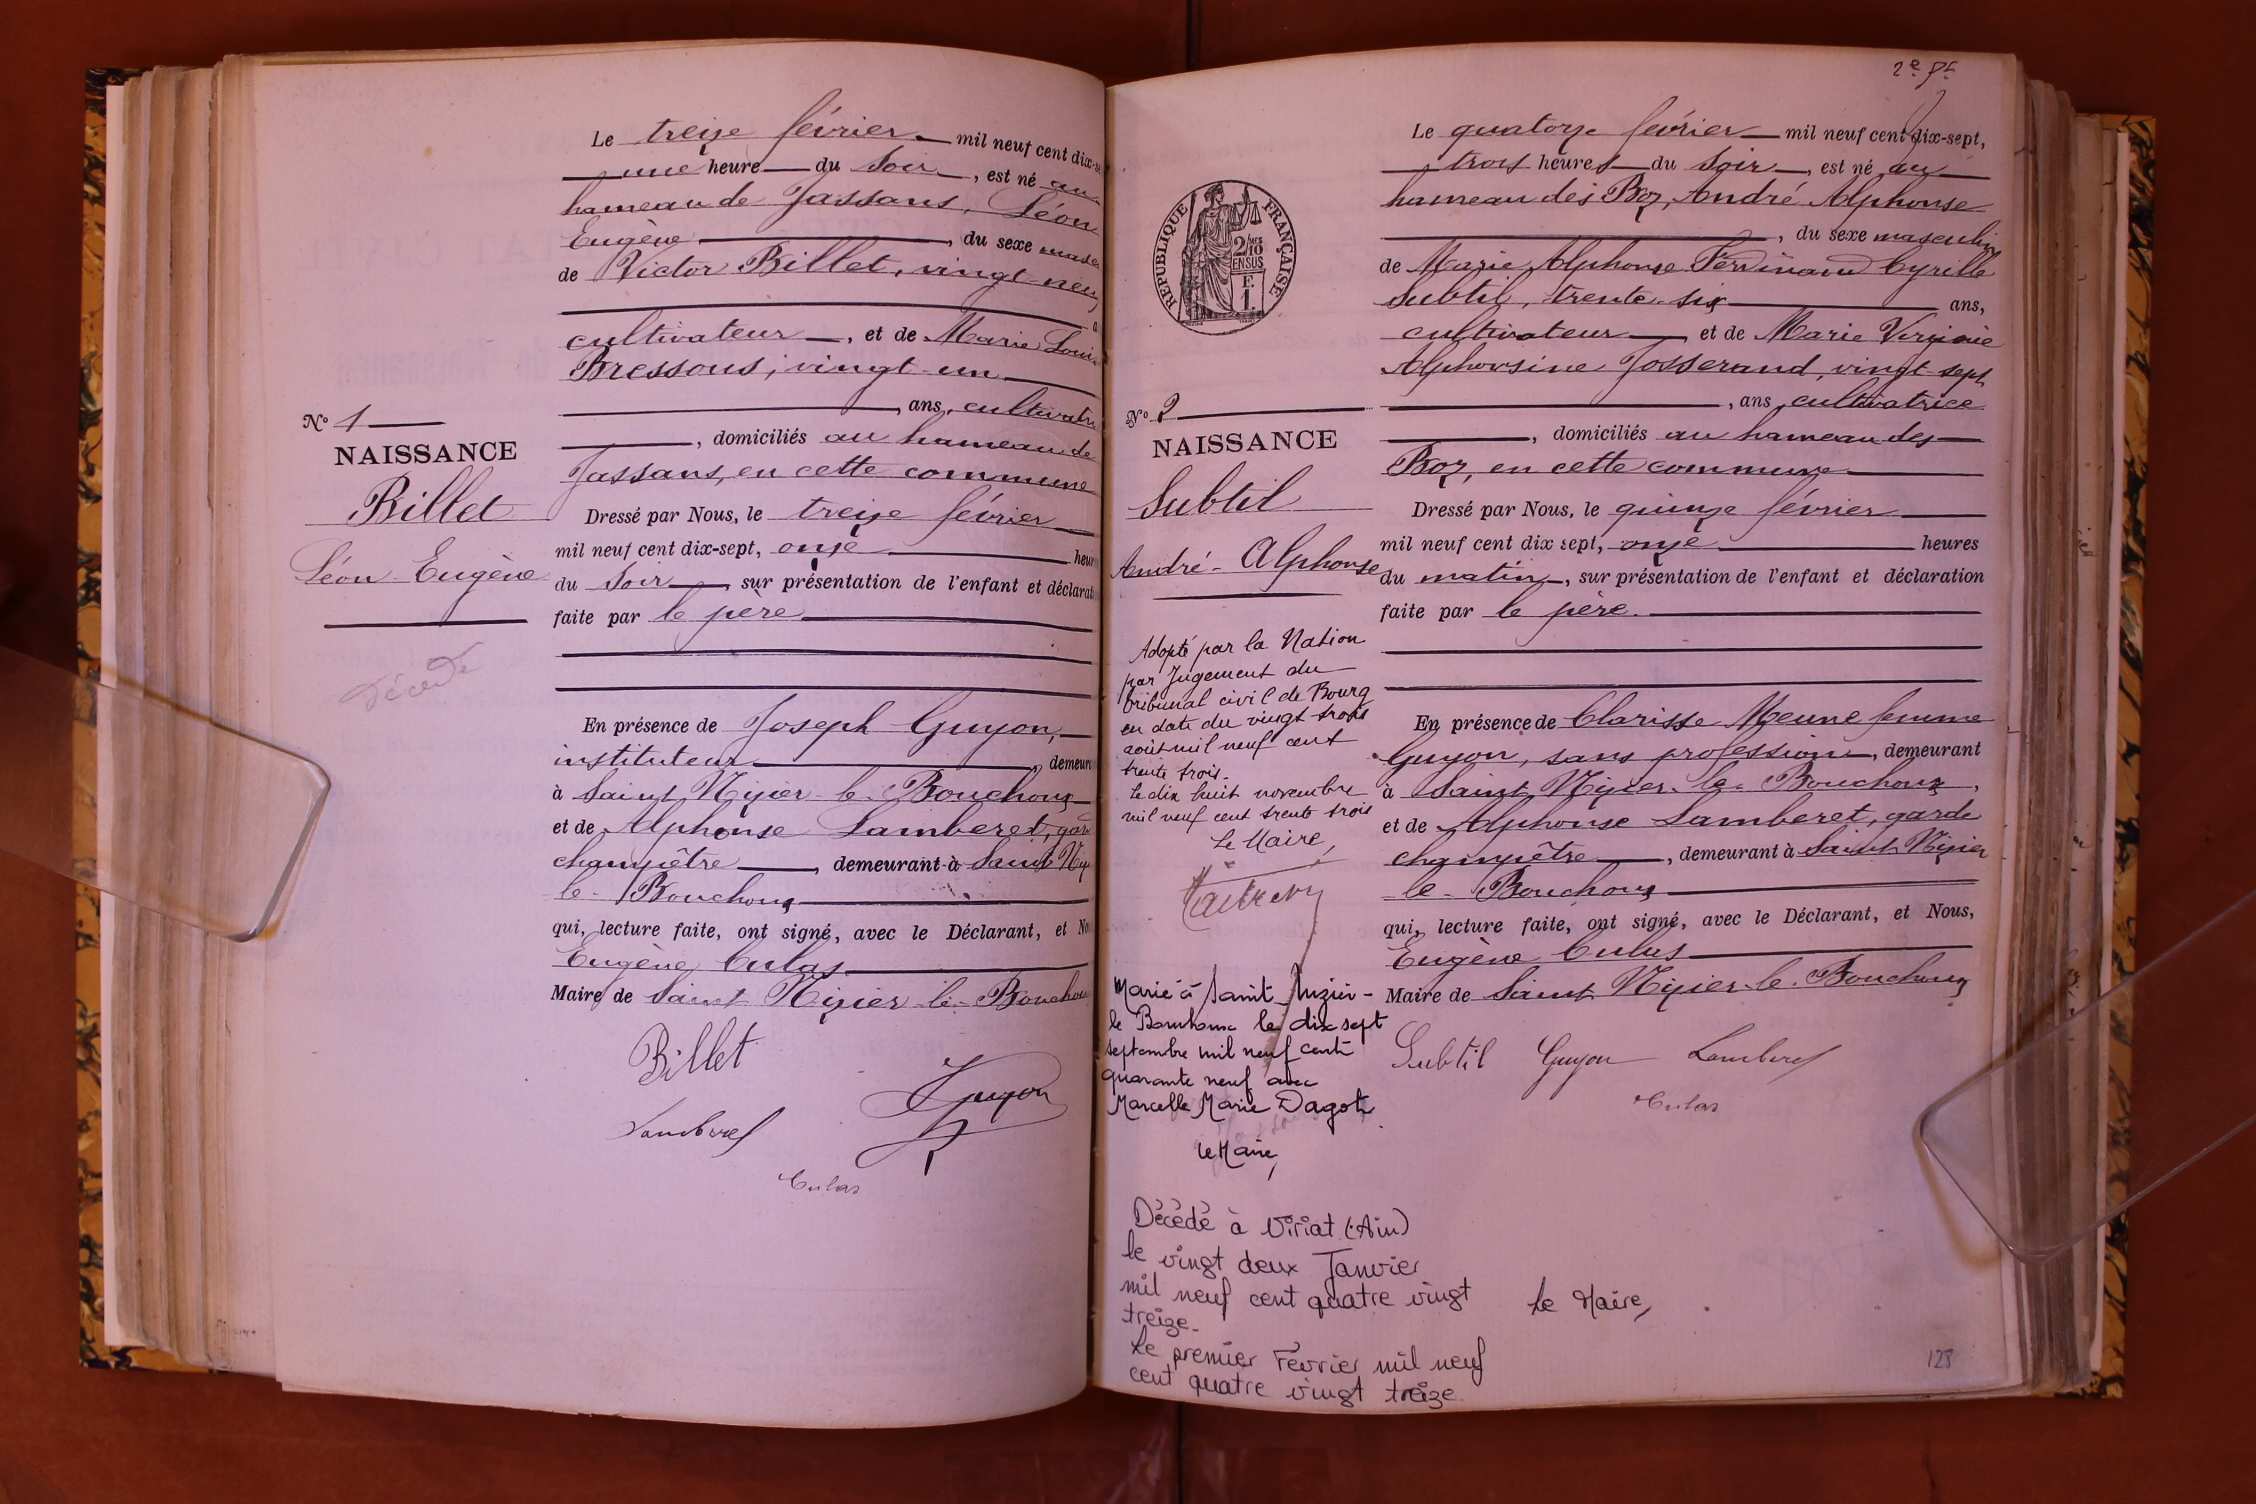 N° 1
NAISSANCE
Billet
Léon Eugène
Décédé
Le treize février mil neuf cent dix-se
une heure du soir, est né au
hameau de Jassans, Léon
Eugène, du sexe masc
de Victor Billet, vingt-neuf
cultivateur, et de Marie Loui
Bressous, vingt-un
ans, cultivatri
, domiciliés au hameau de
Jassans, en cette commune
Dressé par Nous, le treize février
mil neuf cent dix-sept, onze heur
du soir, sur présentation de l'enfant et déclarati
faite par le père
En présence de Joseph Guyon,
instituteur, demeur
à Saint Nizier-le-Bouchoux
et de Alphonse Lamberet, gard
champêtre, demeurant à Saint Nizi
le-Bouchoux
qui, lecture faite, ont signé, avec le Déclarant, et No
Eugène Culas
Maire de Saint Nizier-le-Bouchou
Billet
Guyon
Lamberet
Culas
2e
RÉPUBLIQUE FRANÇAISE
2/10
EN SUS
F.
1.
N° 2
NAISSANCE
Subtil
André-Alphonse
Adopté par la Nation
par Jugement du
tribunal civil de Bourg
en date du vingt trois
août mil neuf cent
trente trois.
Le dix huit novembre
mil neuf cent trente trois
Le Maire,
Marié à Saint Nizier-
le Bouchoux le dix sept
septembre mil neuf cent
quarante neuf avec
Marcelle Marie Dagot
Le Maire,
Décédé à Viriat (Ain)
le vingt deux Janvier
mil neuf cent quatre vingt
treize.
Le premier Février mil neuf
cent quatre vingt treize
Le Maire,
Le quatorze février mil neuf cent dix-sept,
trois heures du soir, est né au
hameau des Boz, André Alphonse
, du sexe masculin
de Marie Alphonse Ferdinand Cyrille
Subtil, trente-six ans,
cultivateur, et de Marie Virginie
Alphonsine Josserand, vingt-sept
, ans, cultivatrice
, domiciliés au hameau des
Boz, en cette commune
Dressé par Nous, le quinze février
mil neuf cent dix sept, onze heures
du matin, sur présentation de l'enfant et déclaration
faite par le père.
En présence de Clarisse Meune femme
Guyon, sans profession, demeurant
à Saint Nizier-le-Bouchoux,
et de Alphonse Lamberet, garde
champêtre, demeurant à Saint Nizier
le-Bouchoux
qui, lecture faite, ont signé, avec le Déclarant, et Nous,
Eugène Culas
Maire de Saint Nizier-le-Bouchoux
Subtil Guyon Lamberet
Culas
128